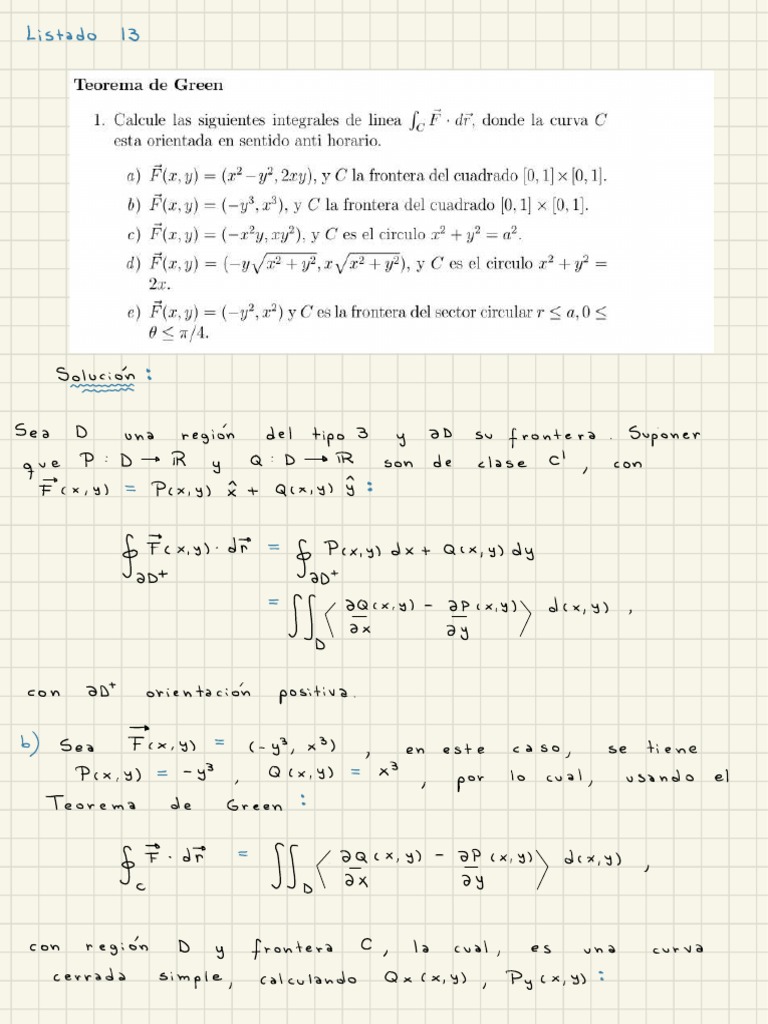 Listado 13
Teorema de Green
1. Calcule las siguientes integrales de linea ∫_C F⃗ · dr⃗, donde la curva C
esta orientada en sentido anti horario.
a) F⃗(x, y) = (x² − y², 2xy), y C la frontera del cuadrado [0, 1] × [0, 1].
b) F⃗(x, y) = (−y³, x³), y C la frontera del cuadrado [0, 1] × [0, 1].
c) F⃗(x, y) = (−x²y, xy²), y C es el circulo x² + y² = a².
d) F⃗(x, y) = (−y√(x² + y²), x√(x² + y²)), y C es el circulo x² + y² =
2x.
e) F⃗(x, y) = (−y², x²) y C es la frontera del sector circular r ≤ a, 0 ≤
θ ≤ π/4.
Solución :
Sea D una región del tipo 3 y ∂D su frontera. Suponer
que P : D → ℝ y Q : D → ℝ son de clase C¹, con
F⃗(x,y) = P(x,y) x̂ + Q(x,y) ŷ :
∮_∂D⁺ F⃗(x,y) · dr⃗ = ∮_∂D⁺ P(x,y) dx + Q(x,y) dy
= ∬_D ⟨ ∂Q(x,y)/∂x − ∂P(x,y)/∂y ⟩ d(x,y) ,
con ∂D⁺ orientación positiva.
b) Sea F⃗(x,y) = (−y³, x³) , en este caso, se tiene
P(x,y) = −y³ , Q(x,y) = x³ , por lo cual, usando el
Teorema de Green :
∮_C F⃗ · dr⃗ = ∬_D ⟨ ∂Q(x,y)/∂x − ∂P(x,y)/∂y ⟩ d(x,y) ,
con región D y frontera C, la cual, es una curva
cerrada simple, calculando Qx(x,y) , Py(x,y) :